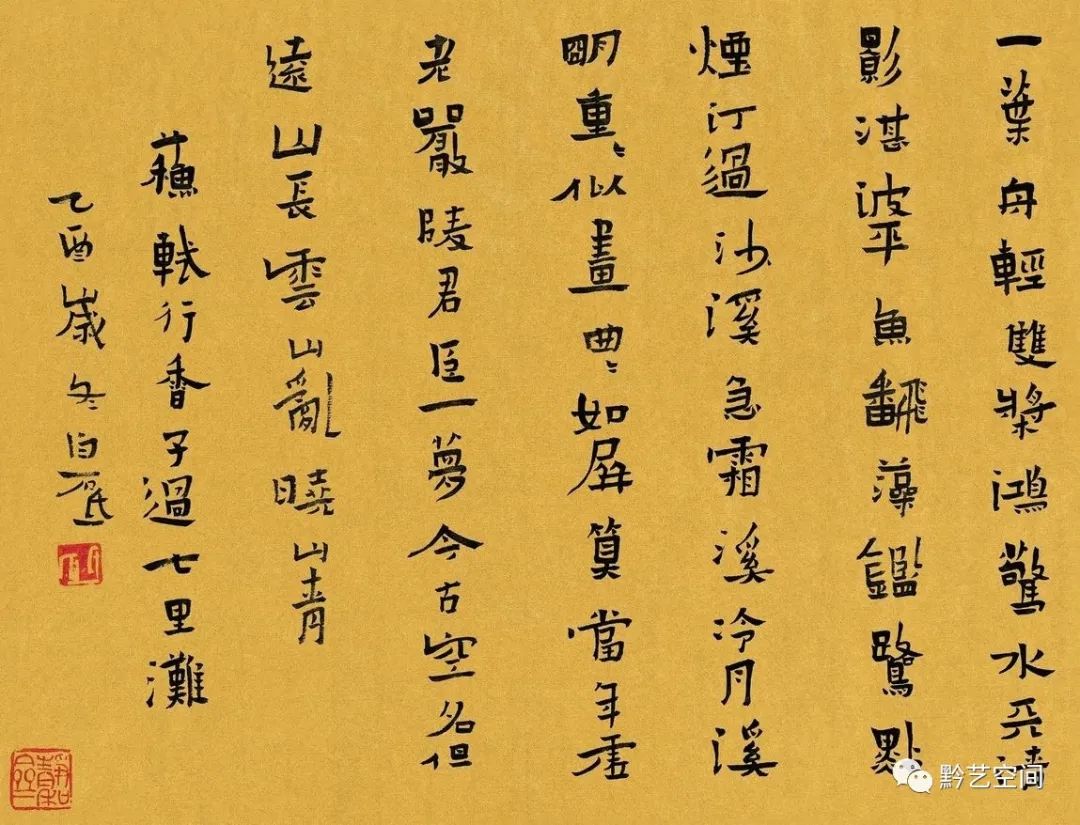 一葉舟輕雙槳鴻驚水天清
影湛波平魚翻藻鑑鷺點
煙汀過沙溪急霜溪冷月溪
朙重〻似畫曲〻如屏算當年虛
老嚴陵君臣一夢今古空名但
遠山長雲山亂曉山青
蘇軾行香子過七里灘
乙酉歲冬白砥
黔艺空间